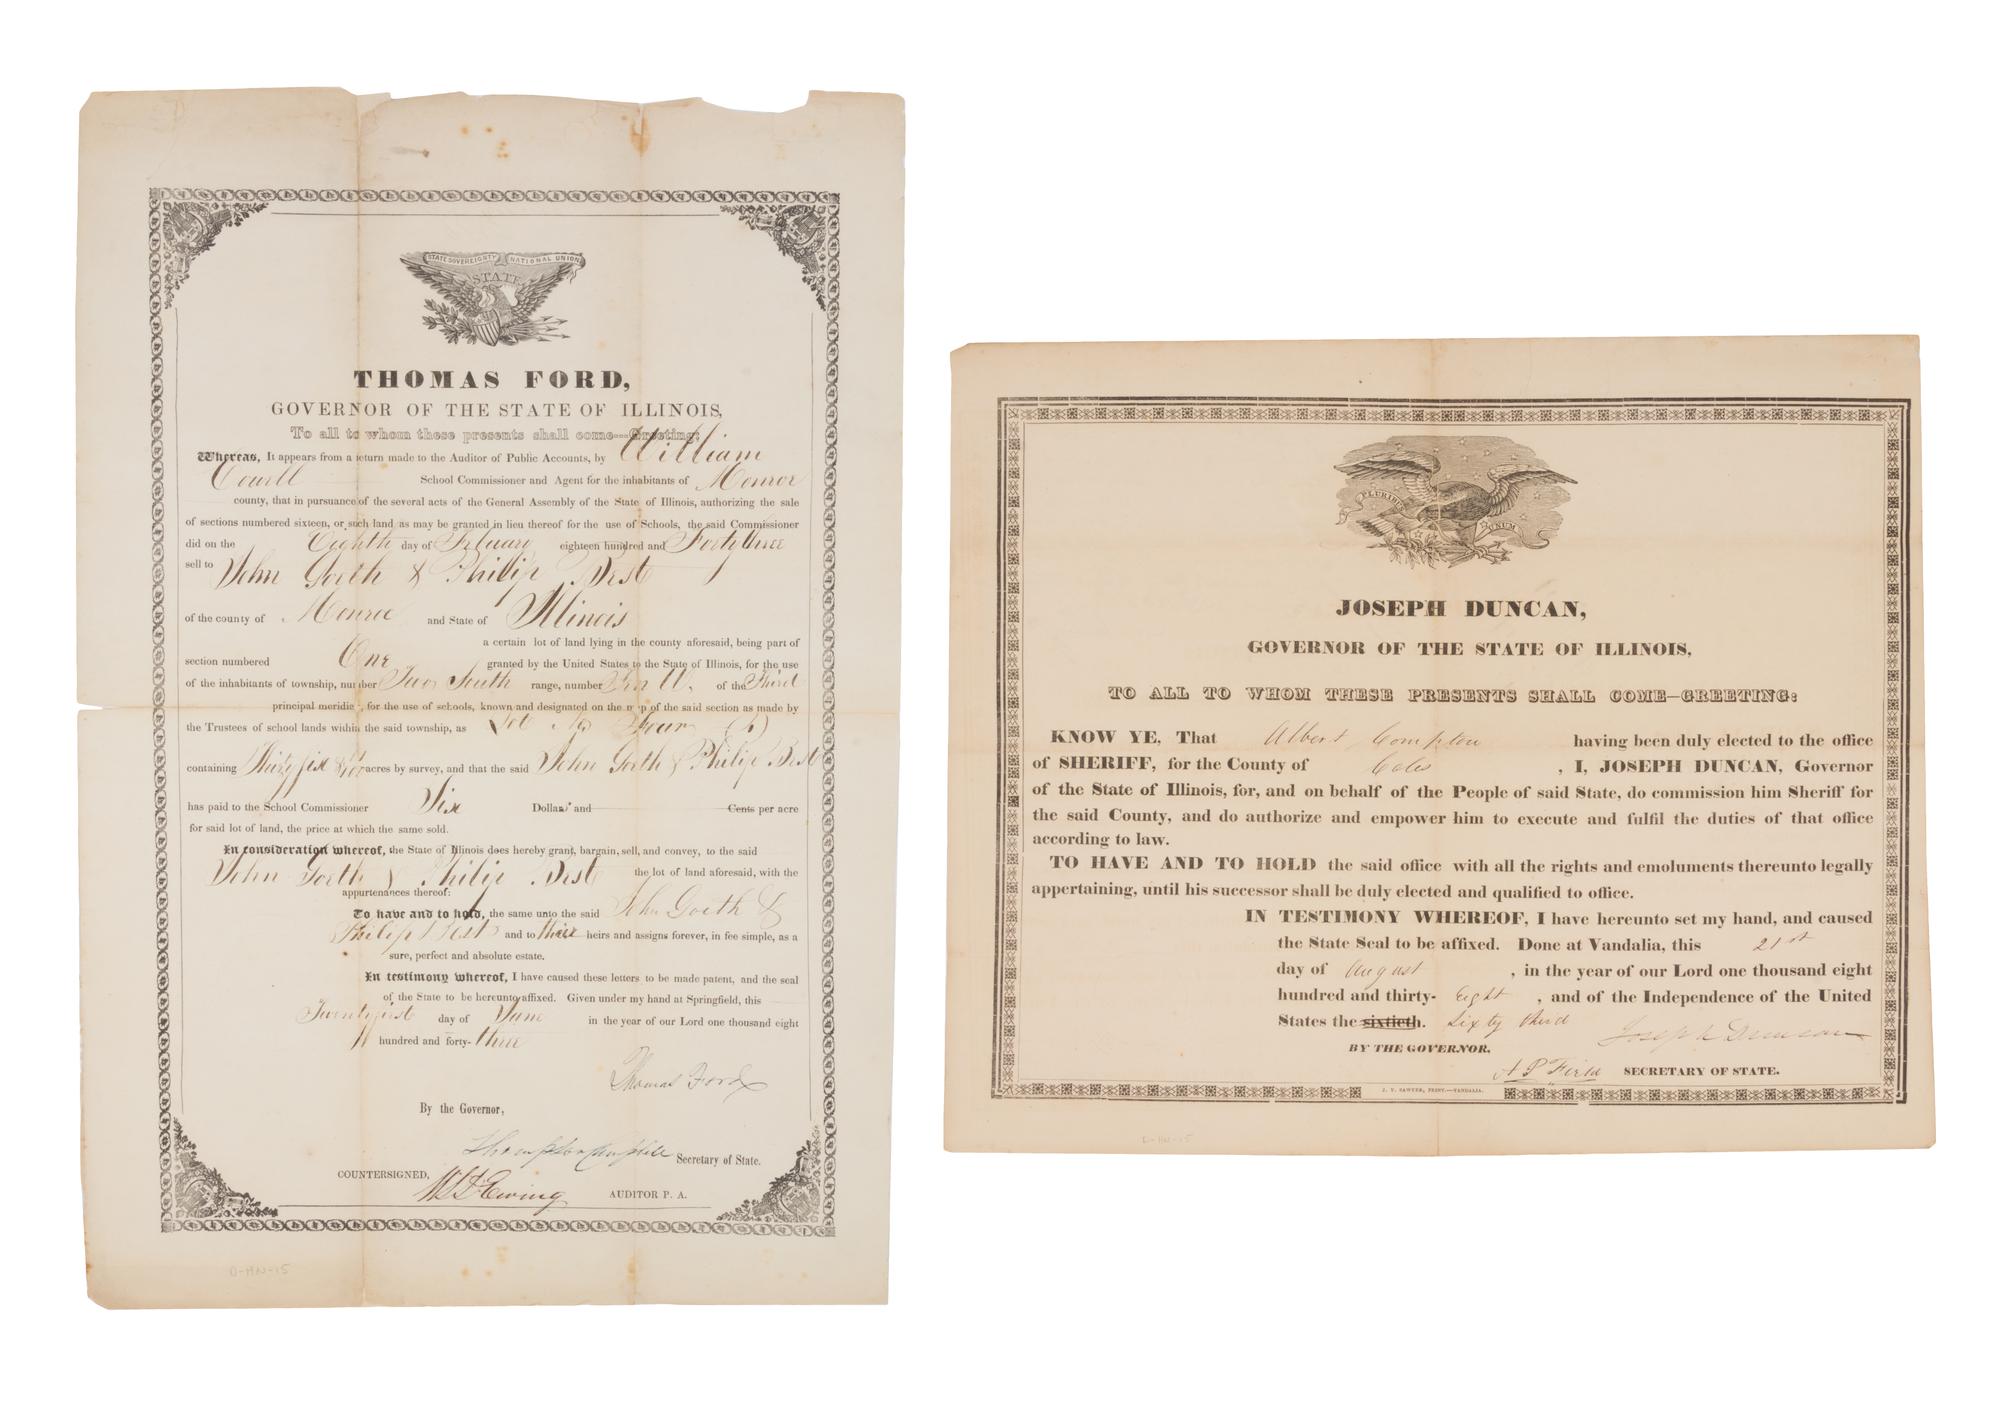 STATE SOVEREIGNTY NATIONAL UNION
STATE
THOMAS FORD,
GOVERNOR OF THE STATE OF ILLINOIS,
To all to whom these presents shall come---Greeting:
Whereas, It appears from a return made to the Auditor of Public Accounts, by William
School Commissioner and Agent for the inhabitants of Monroe
county, that in pursuance of the several acts of the General Assembly of the State of Illinois, authorizing the sale
of sections numbered sixteen, or such land as may be granted in lieu thereof for the use of Schools, the said Commissioner
did on the Eighth day of February eighteen hundred and Forty three
sell to John Goeth & Philip Best
of the county of Monroe and State of Illinois
a certain lot of land lying in the county aforesaid, being part of
section numbered One granted by the United States to the State of Illinois, for the use
of the inhabitants of township, number Two South range, number Ten W. of the Third
principal meridian, for the use of schools, known and designated on the map of the said section as made by
the Trustees of school lands within the said township, as Lot No Four (4)
containing Thirty six acres by survey, and that the said John Goeth & Philip Best
has paid to the School Commissioner Six Dollars and Cents per acre
for said lot of land, the price at which the same sold.
In consideration whereof, the State of Illinois does hereby grant, bargain, sell, and convey, to the said
John Goeth & Philip Best the lot of land aforesaid, with the
appurtenances thereof:
To have and to hold, the same unto the said John Goeth &
Philip Best and to their heirs and assigns forever, in fee simple, as a
sure, perfect and absolute estate.
In testimony whereof, I have caused these letters to be made patent, and the seal
of the State to be hereunto affixed. Given under my hand at Springfield, this
Twenty first day of June in the year of our Lord one thousand eight
hundred and forty- three
Thomas Ford
By the Governor,
Thompson Campbell Secretary of State.
COUNTERSIGNED,
W L D Ewing AUDITOR P. A.
D-HN-15
E PLURIBUS UNUM
JOSEPH DUNCAN,
GOVERNOR OF THE STATE OF ILLINOIS,
TO ALL TO WHOM THESE PRESENTS SHALL COME—GREETING:
KNOW YE, That Albert Compton having been duly elected to the office
of SHERIFF, for the County of Coles, I, JOSEPH DUNCAN, Governor
of the State of Illinois, for, and on behalf of the People of said State, do commission him Sheriff for
the said County, and do authorize and empower him to execute and fulfil the duties of that office
according to law.
TO HAVE AND TO HOLD the said office with all the rights and emoluments thereunto legally
appertaining, until his successor shall be duly elected and qualified to office.
IN TESTIMONY WHEREOF, I have hereunto set my hand, and caused
the State Seal to be affixed. Done at Vandalia, this 21st
day of August, in the year of our Lord one thousand eight
hundred and thirty- Eight, and of the Independence of the United
States the sixtieth. Sixty third Joseph Duncan
BY THE GOVERNOR,
A P Field SECRETARY OF STATE.
J. Y. SAWYER, PRINT.—VANDALIA.
D-HN-15